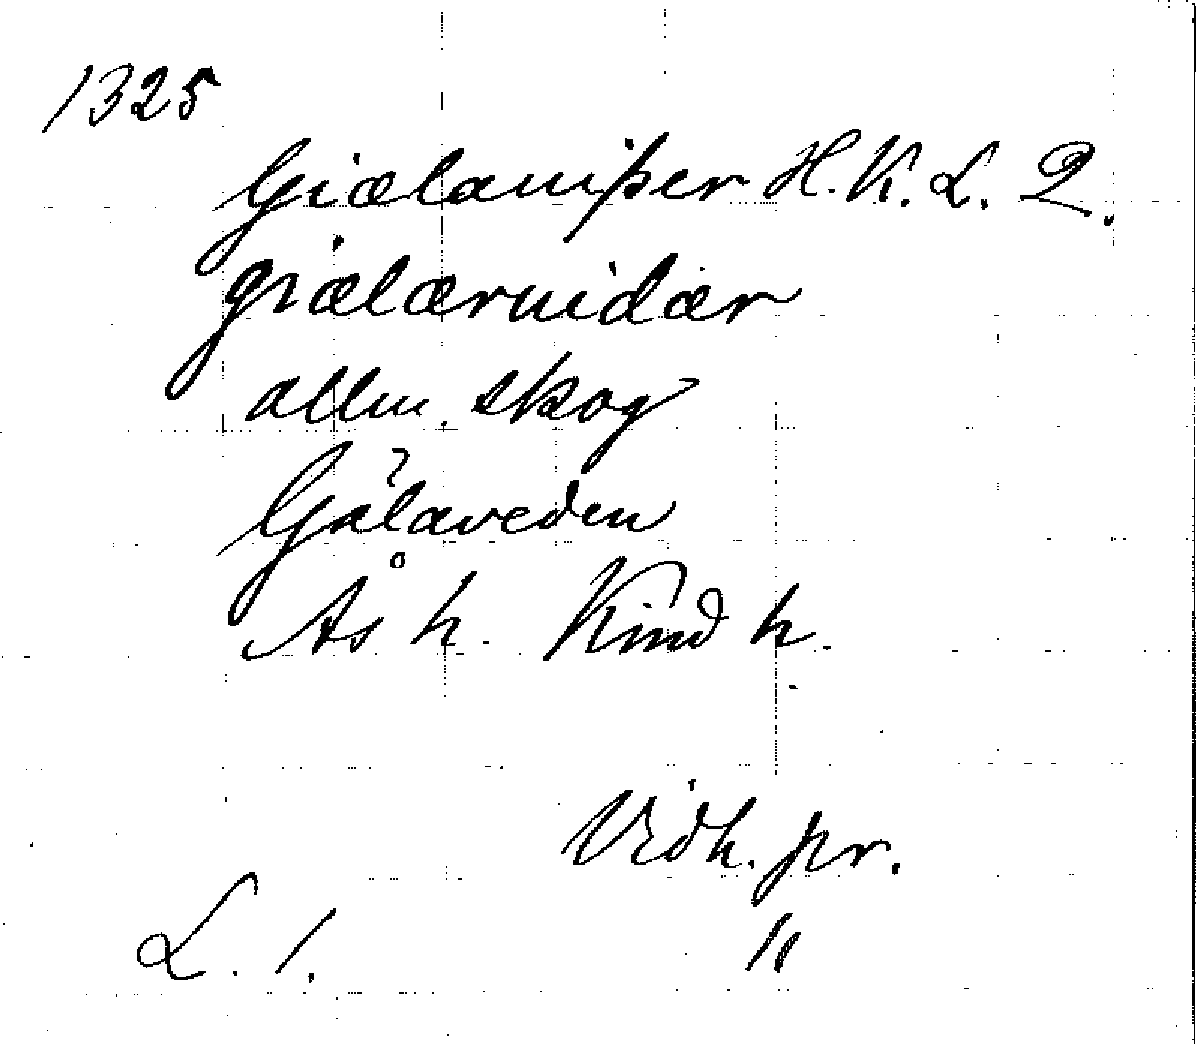 1325
Giælauiþer H. K. L. 2.
giælæruidær
allm. skog
Gälaveden
Ås h. Kind h.
Vidh. pr.
L. 1. "